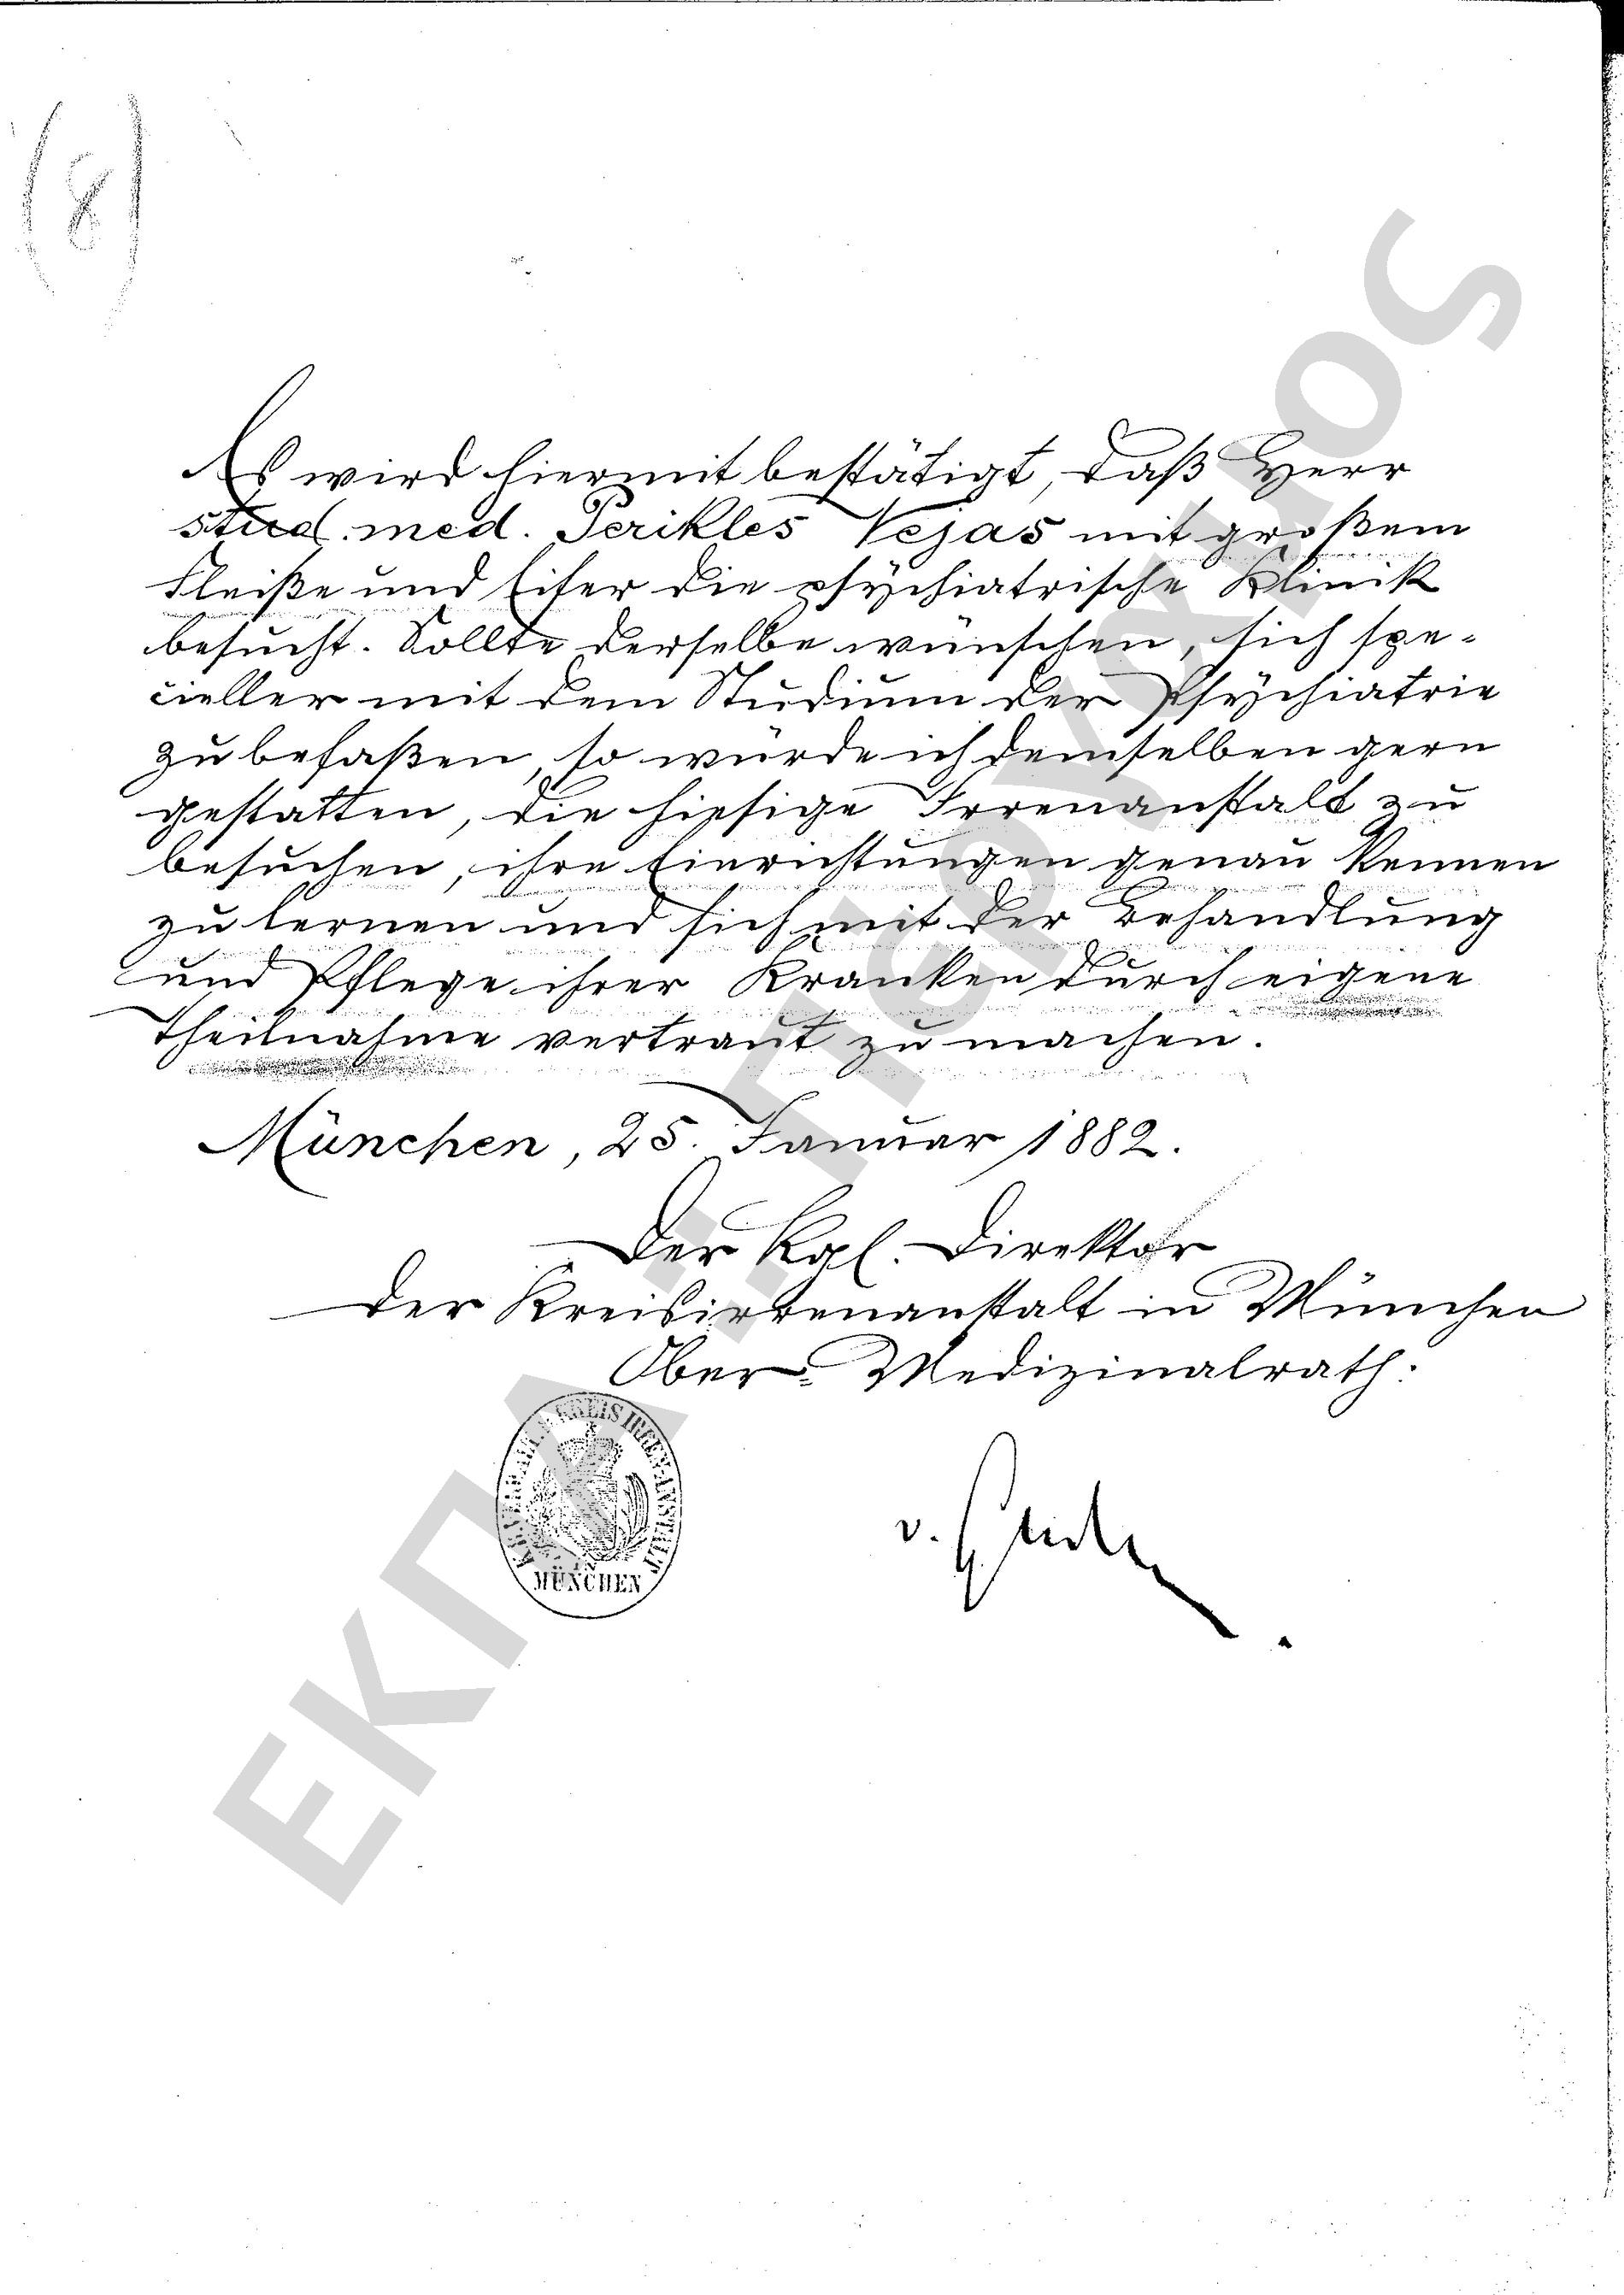 (8)
Es wird hiermit bestätigt, daß Herr
stud. med. Perikles Vejas mit großem
Fleiße und Eifer die psychiatrische Klinik
besucht. Sollte derselbe wünschen, sich spe-
cieller mit dem Studium der Psychiatrie
zu befaßen, so würde ich demselben gern
gestatten, die hiesige Irrenanstalt zu
besuchen, ihre Einrichtungen genau kennen
zu lernen und sich mit der Behandlung
und Pflege ihrer Kranken durch eigene
Theilnahme vertraut zu machen.
München, 25. Januar 1882.
Der Kgl. Direktor
der Kreisirrenanstalt in München
Ober-Medizinalrath:
v. Gudden.
KREIS IRREN-ANSTALT
IN
MÜNCHEN